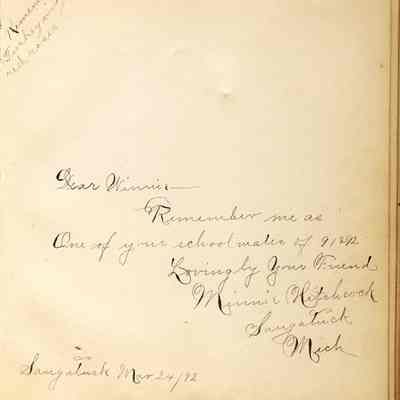 Remem
Turkey wing
red roses
Dear Winnie
Remember me as
One of your schoolmates of 91 & 92
Lovingly Your Friend
Minnie Hitchcock
Saugatuck
Mich
Saugatuck Mar 24/92